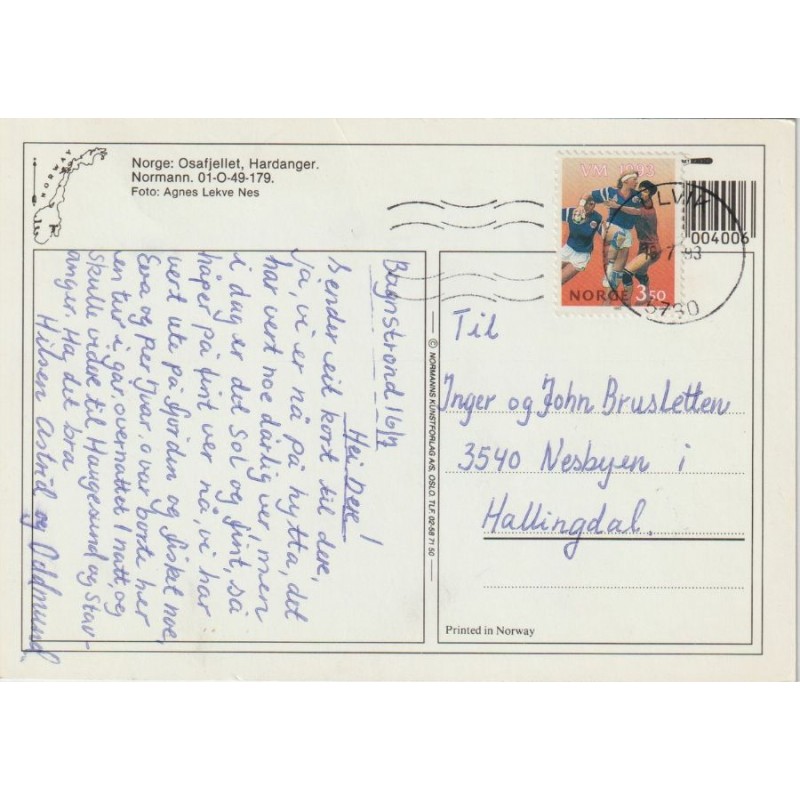 NORWAY
Norge: Osafjellet, Hardanger.
Normann. 01-O-49-179.
Foto: Agnes Lekve Nes
VM 1993
NORGE 3,50
ULVIK
7 93
5730
004006
Bagnstrond 16/7
Hei Dere!
Sender eit kort til dere,
ja, vi er nå på hytta, det
har vert noe dårlig ver, men
i dag er det sol og fint, så
håper på fint ver nå, vi har
vert ute på fjorden og fisket noe,
Eva og per Ivar, o var borte her
en tur i går, overnattet i natt, og
skulle videre til Haugesund og Stav-
anger. Ha det bra
Hilsen Astrid og Oddmund.
© NORMANNS KUNSTFORLAG A/S, OSLO. TLF. 02-58 71 50
Til
Inger og John Brusletten
3540 Nesbyen i
Hallingdal.
Printed in Norway